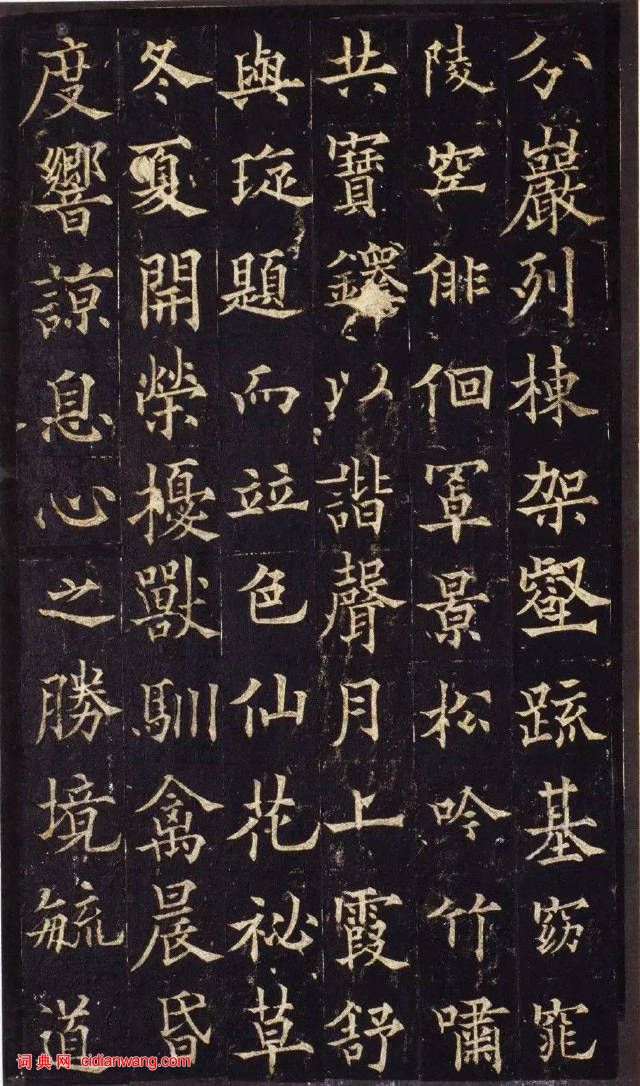 分巖列棟架壑疏基窈窕
陵空俳佪罩景松吟竹嘯
共寶鐸以諧聲月上霞舒
與琁題而並色仙花祕草
冬夏開榮擾獸馴禽晨昏
度響諒息心之勝境毓道
词典网 cidianwang.com